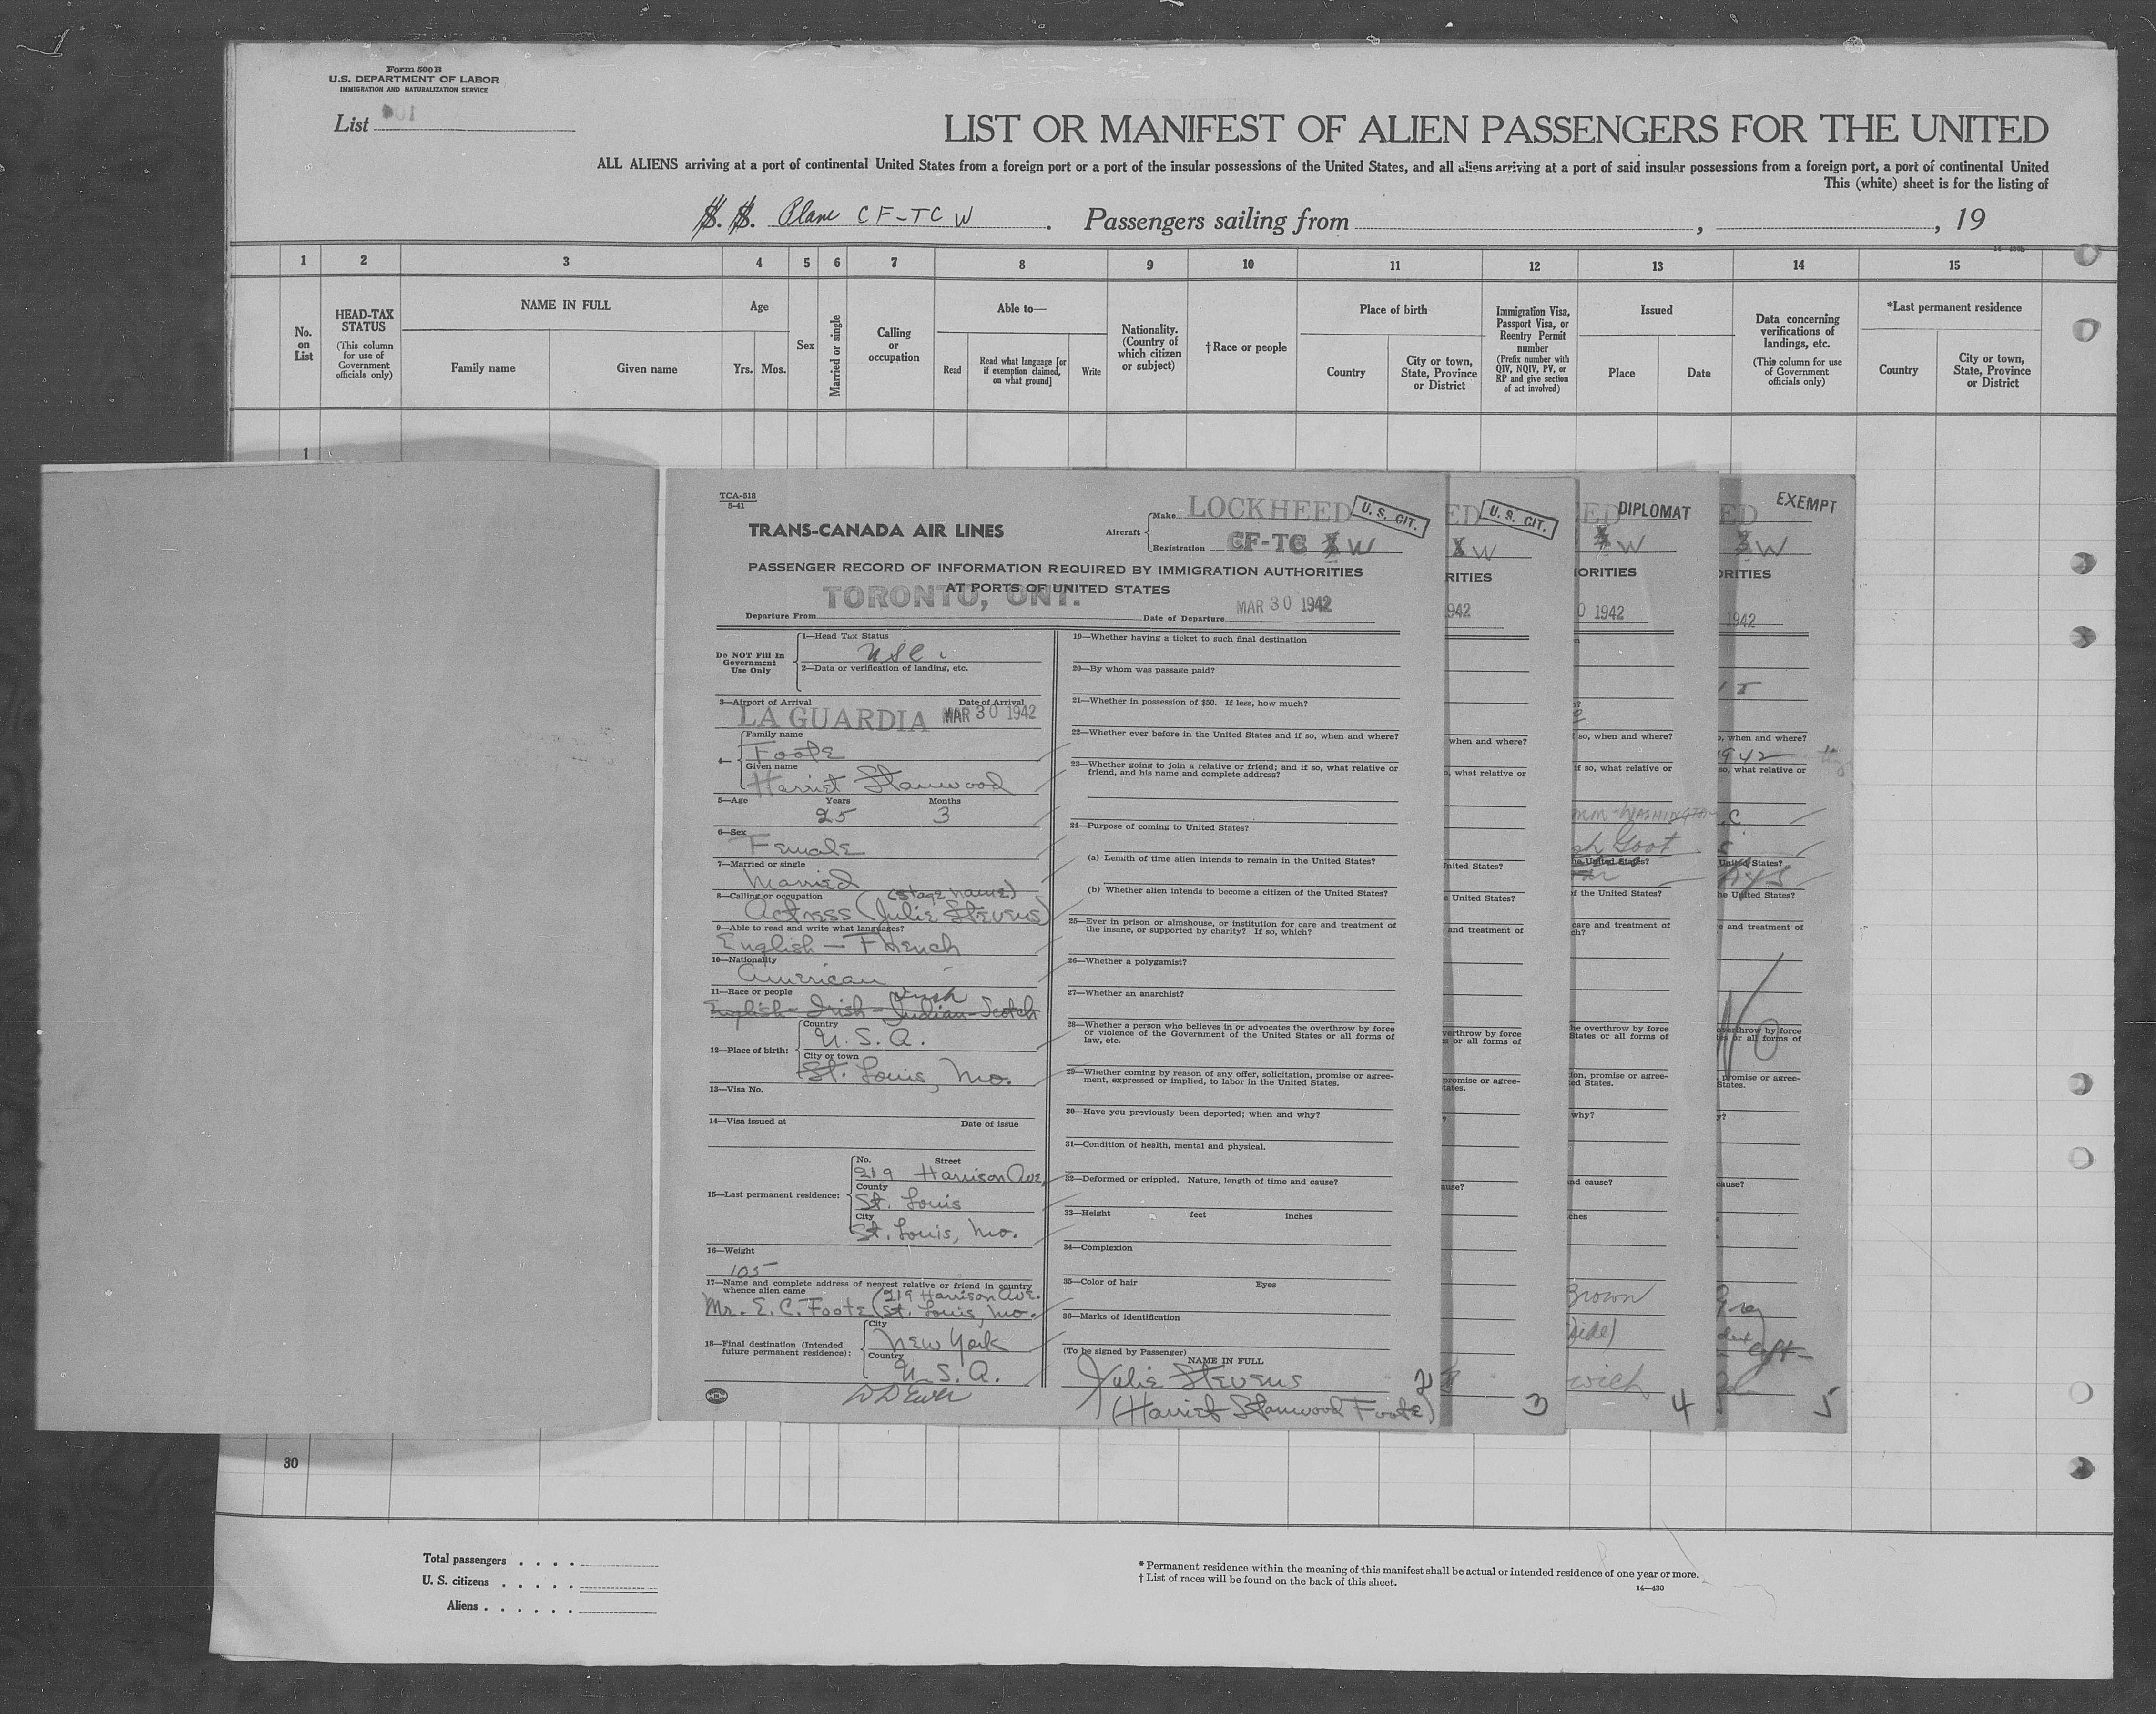 Form 500B
U.S. DEPARTMENT OF LABOR
IMMIGRATION AND NATURALIZATION SERVICE
List
LIST OR MANIFEST OF ALIEN PASSENGERS FOR THE UNITED
ALL ALIENS arriving at a port of continental United States from a foreign port or a port of the insular possessions of the United States, and all aliens arriving at a port of said insular possessions from a foreign port, a port of continental United
This (white) sheet is for the listing of
S. S. Plane CF-TC W . Passengers sailing from , , 19
1 2 3 4 5 6 7 8 9 10 11 12 13 14 15
No. on List
HEAD-TAX STATUS
(This column for use of Government officials only)
NAME IN FULL
Family name Given name
Age
Yrs. Mos.
Sex
Married or single
Calling or occupation
Able to—
Read
Read what language [or if exemption claimed, on what ground]
Write
Nationality. (Country of which citizen or subject)
†Race or people
Place of birth
Country
City or town, State, Province or District
Immigration Visa, Passport Visa, or Reentry Permit number
(Prefix number with QIV, NQIV, PV, or RP and give section of act involved)
Issued
Place Date
Data concerning verifications of landings, etc.
(This column for use of Government officials only)
*Last permanent residence
Country
City or town, State, Province or District
1
TCA-518
5-41
TRANS-CANADA AIR LINES
Aircraft
Make LOCKHEED
U. S. CIT.
Registration CF-TC W
PASSENGER RECORD OF INFORMATION REQUIRED BY IMMIGRATION AUTHORITIES
AT PORTS OF UNITED STATES
Departure From TORONTO, ONT. Date of Departure MAR 30 1942
Do NOT Fill In Government Use Only
1—Head Tax Status
USC
2—Data or verification of landing, etc.
3—Airport of Arrival Date of Arrival
LA GUARDIA MAR 30 1942
4—
Family name
Foote
Given name
Harriet Stanwood
5—Age Years Months
25 3
6—Sex
Female
7—Married or single
Married
8—Calling or occupation (stage name)
Actress (Julie Stevens)
9—Able to read and write what languages?
English — French
10—Nationality
American
11—Race or people Irish
English - Irish - Indian - Scotch
12—Place of birth:
Country
U. S. A.
City or town
St. Louis, Mo.
13—Visa No.
14—Visa issued at Date of issue
15—Last permanent residence:
No. Street
219 Harrison Ave.
County
St. Louis
City
St. Louis, Mo.
16—Weight
105
17—Name and complete address of nearest relative or friend in country
whence alien came (219 Harrison Ave.
Mr. E. C. Foote (St. Louis, Mo.
18—Final destination (Intended future permanent residence):
City
New York
Country
U. S. A.
19—Whether having a ticket to such final destination
20—By whom was passage paid?
21—Whether in possession of $50. If less, how much?
22—Whether ever before in the United States and if so, when and where?
23—Whether going to join a relative or friend; and if so, what relative or
friend, and his name and complete address?
24—Purpose of coming to United States?
(a) Length of time alien intends to remain in the United States?
(b) Whether alien intends to become a citizen of the United States?
25—Ever in prison or almshouse, or institution for care and treatment of
the insane, or supported by charity? If so, which?
26—Whether a polygamist?
27—Whether an anarchist?
28—Whether a person who believes in or advocates the overthrow by force
or violence of the Government of the United States or all forms of
law, etc.
29—Whether coming by reason of any offer, solicitation, promise or agree-
ment, expressed or implied, to labor in the United States.
30—Have you previously been deported; when and why?
31—Condition of health, mental and physical.
32—Deformed or crippled. Nature, length of time and cause?
33—Height feet inches
34—Complexion
35—Color of hair Eyes
36—Marks of identification
(To be signed by Passenger)
NAME IN FULL
Julie Stevens
(Harriet Stanwood Foote)
2
ED U. S. CIT.
W
RITIES
942
when and where?
o, what relative or
nited States?
e United States?
and treatment of
verthrow by force
s or all forms of
promise or agree-
tates.
?
ause?
3
ED DIPLOMAT
W
ORITIES
0 1942
so, when and where?
if so, what relative or
WASHINGTON
he United States?
of the United States?
care and treatment of
ch?
he overthrow by force
States or all forms of
ion, promise or agree-
ed States.
why?
nd cause?
ches
Brown
4
ED EXEMPT
W
ORITIES
1942
o, when and where?
1942
so, what relative or
.C
United States?
he United States?
e and treatment of
No
overthrow by force
es or all forms of
, promise or agree-
States.
y?
cause?
5
30
Total passengers . . . .
U. S. citizens . . . . .
Aliens . . . . . .
* Permanent residence within the meaning of this manifest shall be actual or intended residence of one year or more.
† List of races will be found on the back of this sheet.
14—430